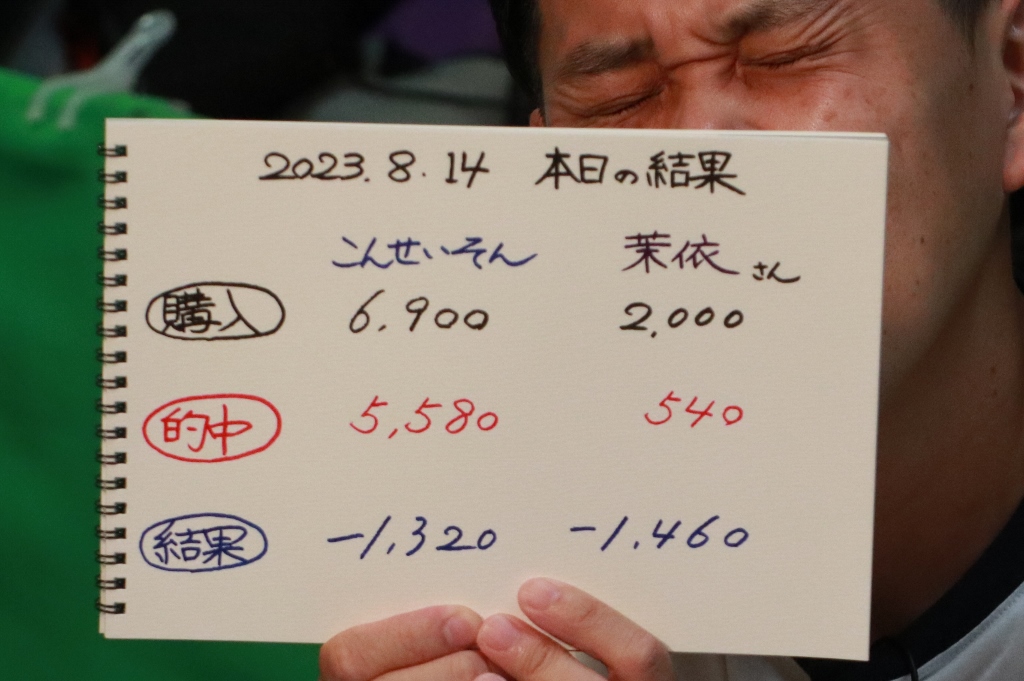 2023.8.14 本日の結果
こんせいそん 茉依さん
購入 6,900 2,000
的中 5,580 540
結果 -1,320 -1,460